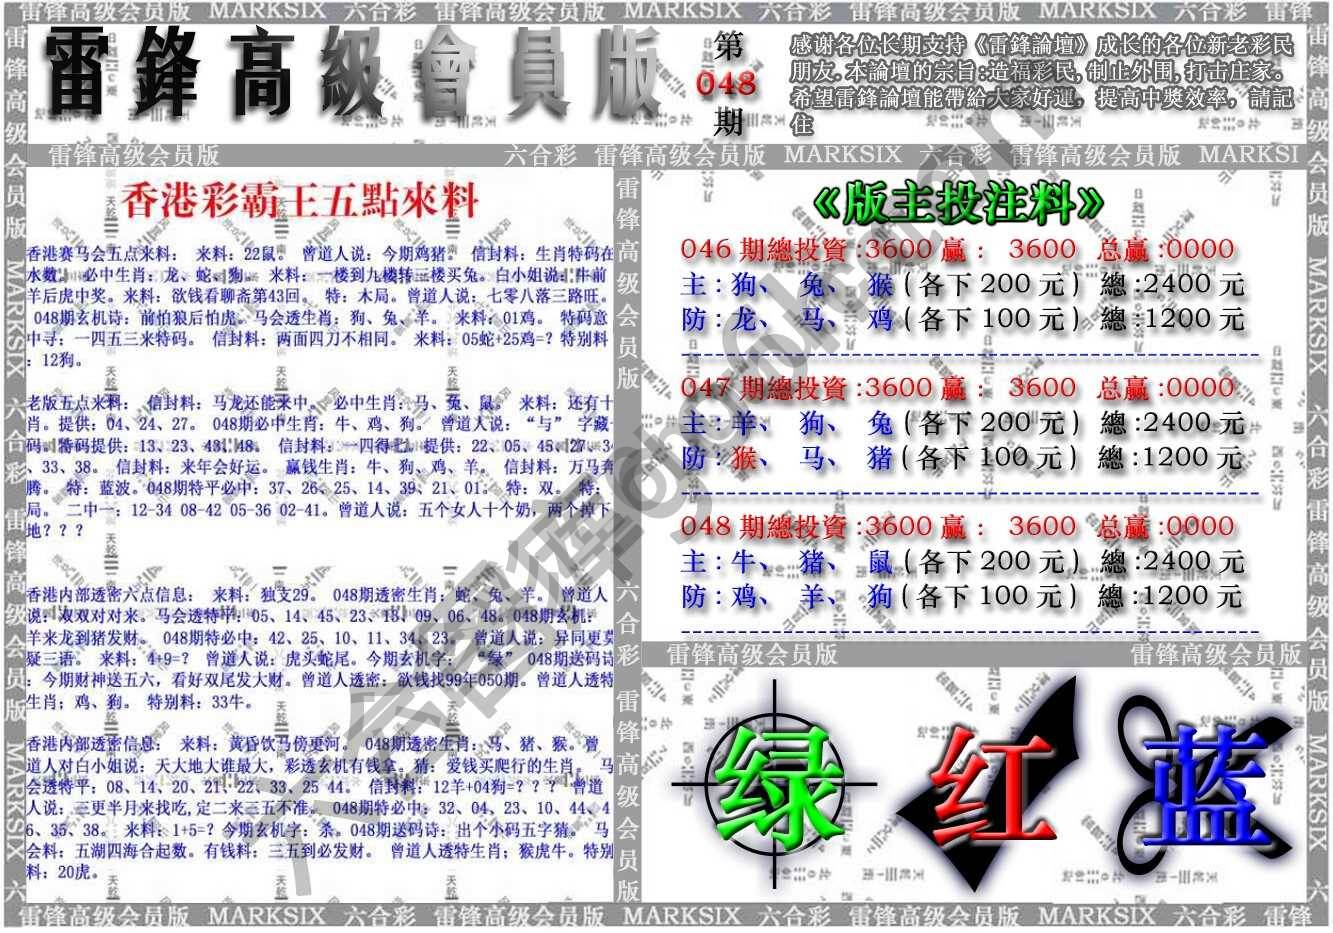 雷锋高级会员版 MARKSIX 六合彩 雷锋高级会员版 MARKSIX 六合彩 雷锋高级会员版 MARKSIX 六合彩 雷锋
雷鋒高級會員版
第
048
期
感谢各位长期支持《雷鋒論壇》成长的各位新老彩民
朋友.本論壇的宗旨:造福彩民,制止外围,打击庄家。
希望雷鋒論壇能帶給大家好運，提高中獎效率，請記
住
雷锋高级会员版 六合彩 雷锋高级会员版 MARKSIX 六合彩 雷锋高级会员版 MARKSI
香港彩霸王五點來料
香港赛马会五点来料： 来料：22鼠。 曾道人说：今期鸡猪。 信封料：生肖特码在
水数。 必中生肖：龙、蛇、狗。 来料：一楼到九楼转三楼买兔。白小姐说：牛前
羊后虎中奖。来料：欲钱看聊斋第43回。 特：木局。曾道人说：七零八落三路旺。
048期玄机诗：前怕狼后怕虎。马会透生肖：狗、兔、羊。 来料：01鸡。 特码意
中寻：一四五三来特码。 信封料：两面四刀不相同。 来料：05蛇+25鸡=？特别料
：12狗。
老版五点来料： 信封料：马龙还能来中。 必中生肖：马、兔、鼠。 来料：还有十
肖。提供：04、24、27。 048期必中生肖：牛、鸡、狗。 曾道人说：“与” 字藏
码。特码提供：13、23、43、48。 信封料：一四得七。提供：22、05、45、27、34
、33、38。 信封料：来年会好运。 赢钱生肖：牛、狗、鸡、羊。 信封料：万马奔
腾。 特：蓝波。048期特平必中：37、26、25、14、39、21、01。 特：双。 特：
局。 二中一：12-34 08-42 05-36 02-41。曾道人说：五个女人十个奶，两个掉下
地？？？
香港内部透密六点信息： 来料：独支29。 048期透密生肖：蛇、兔、羊。 曾道人
说：双双对对来。马会透特平：05、14、45、23、15、09、06、48。048期玄机：
羊来龙到猪发财。 048期特必中：42、25、10、11、34、23。 曾道人说：异同更莫
疑三语。 来料：4+9=？ 曾道人说：虎头蛇尾。今期玄机字：“绿” 048期送码诗
：今期财神送五六，看好双尾发大财。曾道人透密：欲钱找99年050期。曾道人透特
生肖；鸡、狗。 特别料：33牛。
香港内部透密信息： 来料：黄昏饮马傍更河。 048期透密生肖：马、猪、猴。曾
道人对白小姐说：天大地大谁最大，彩透玄机有钱拿。猜：爱钱买爬行的生肖。 马
会透特平：08、14、20、21、22、33、25 44。 信封料：12羊+04狗=？？？ 曾道
人说：三更半月来找吃,定二来三五不准。 048期特必中：32、04、23、10、44、4
6、35、38。 来料：1+5=？今期玄机字：杀。048期送码诗：出个小码五字猜。 马
会料：五湖四海合起数。有钱料：三五到必发财。 曾道人透特生肖；猴虎牛。特别
料：20虎。
《版主投注料》
046 期總投資:3600 赢： 3600 总赢:0000
主：狗、 兔、 猴(各下 200 元) 總:2400 元
防：龙、 马、 鸡(各下 100 元) 總:1200 元
047 期總投資:3600 赢： 3600 总赢:0000
主：羊、 狗、 兔(各下 200 元) 總:2400 元
防：猴、 马、 猪(各下 100 元) 總:1200 元
048 期總投資:3600 赢： 3600 总赢:0000
主：牛、 猪、 鼠(各下 200 元) 總:2400 元
防：鸡、 羊、 狗(各下 100 元) 總:1200 元
雷锋高级会员版 雷锋高级会员版
绿 红 蓝
雷锋高级会员版 MARKSIX 六合彩 雷锋高级会员版 MARKSIX 六合彩 雷锋高级会员版 MARKSIX 六合彩 雷锋